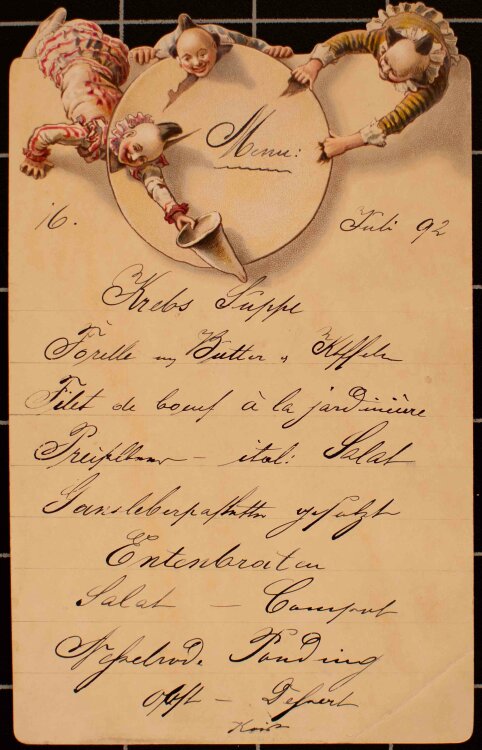 Menu:
16. Juli 92
Krebs Suppe
Forelle m Butter u Kffeln
Filet de boeuf à la jardinière
Preißlbeer – ital: Salat
Gansleberpastette gesulzt
Entenbraten
Salat – Compot
Nesselrode Pouding
Obst – Dessert